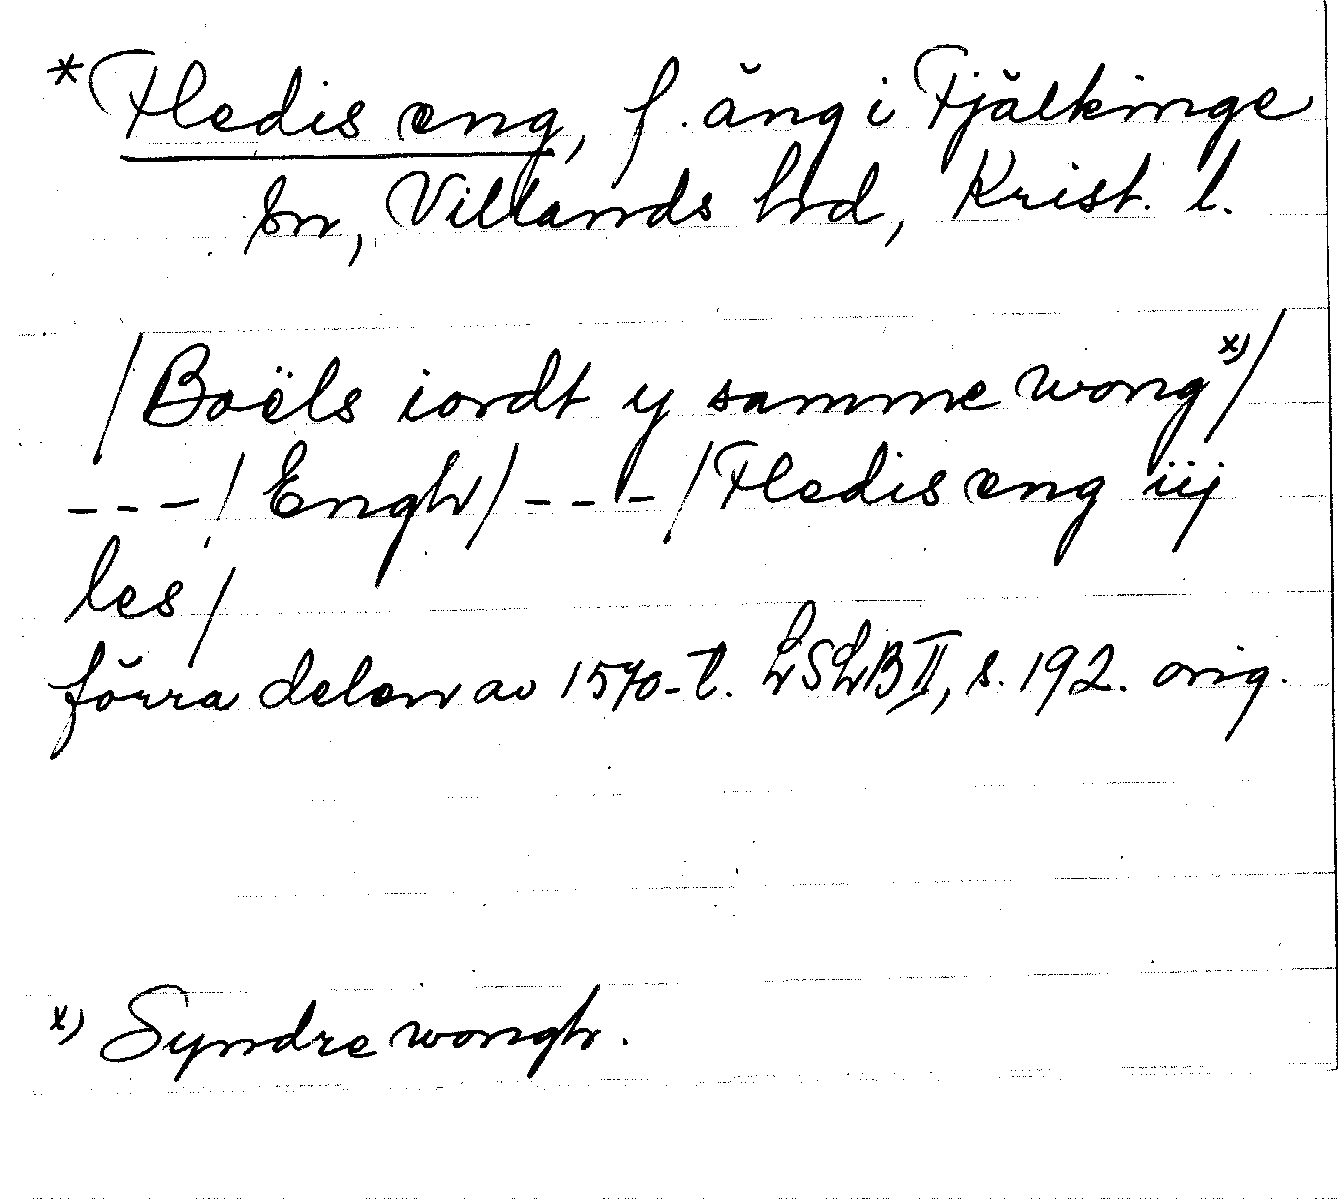 *Fledis eng, f. äng i Fjälkinge
sn, Villands hrd, Krist. l.
/Boëls iordt y samme wong x)/
---/Engh/---/Fledis eng iij
les/
förra delen av 1570-t. LSLB II, s. 192. orig.
x) Syndre wongh.